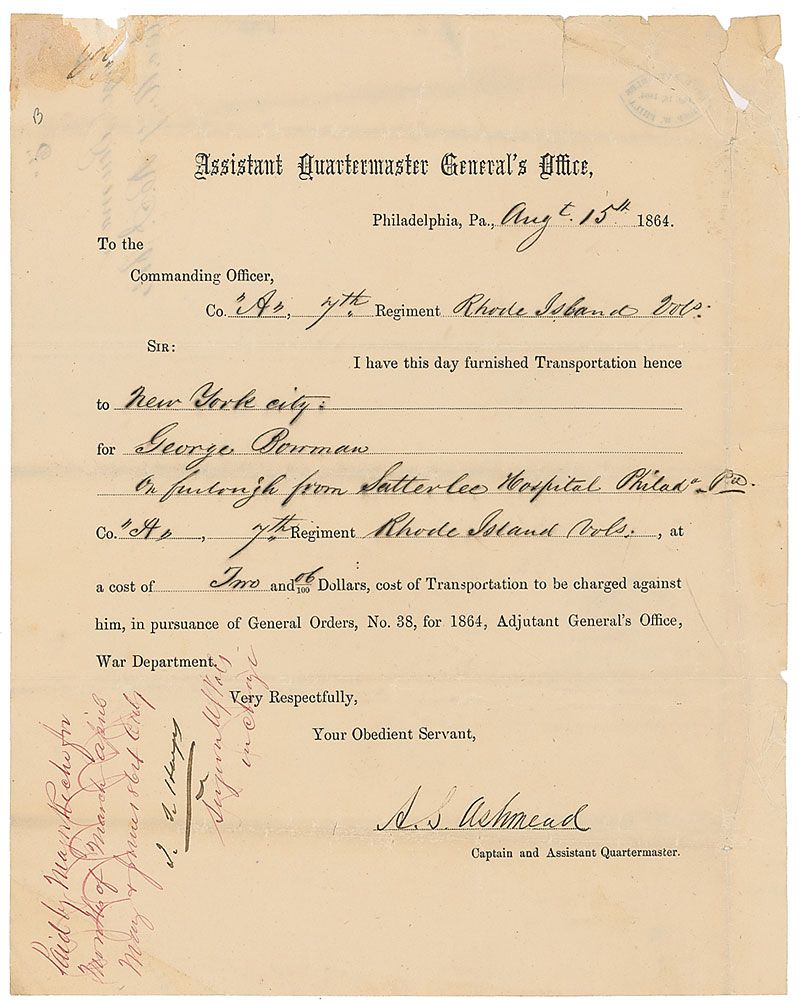 B
Assistant Quartermaster General's Office,
Philadelphia, Pa., Augt. 15th 1864.
To the
Commanding Officer,
Co. "A", 7th Regiment Rhode Island Vols.
SIR:
I have this day furnished Transportation hence
to New York city:
for George Bowman
On furlough from Satterlee Hospital Philada. Pa.
Co. "A", 7th Regiment Rhode Island Vols. , at
a cost of Two and 06/100 Dollars, cost of Transportation to be charged against
him, in pursuance of General Orders, No. 38, for 1864, Adjutant General's Office,
War Department.
Very Respectfully,
Your Obedient Servant,
A. S. Ashmead
Captain and Assistant Quartermaster.
Paid by Major for
Months of March April
May & June 1864 only
Surgeon US Vols
in charge